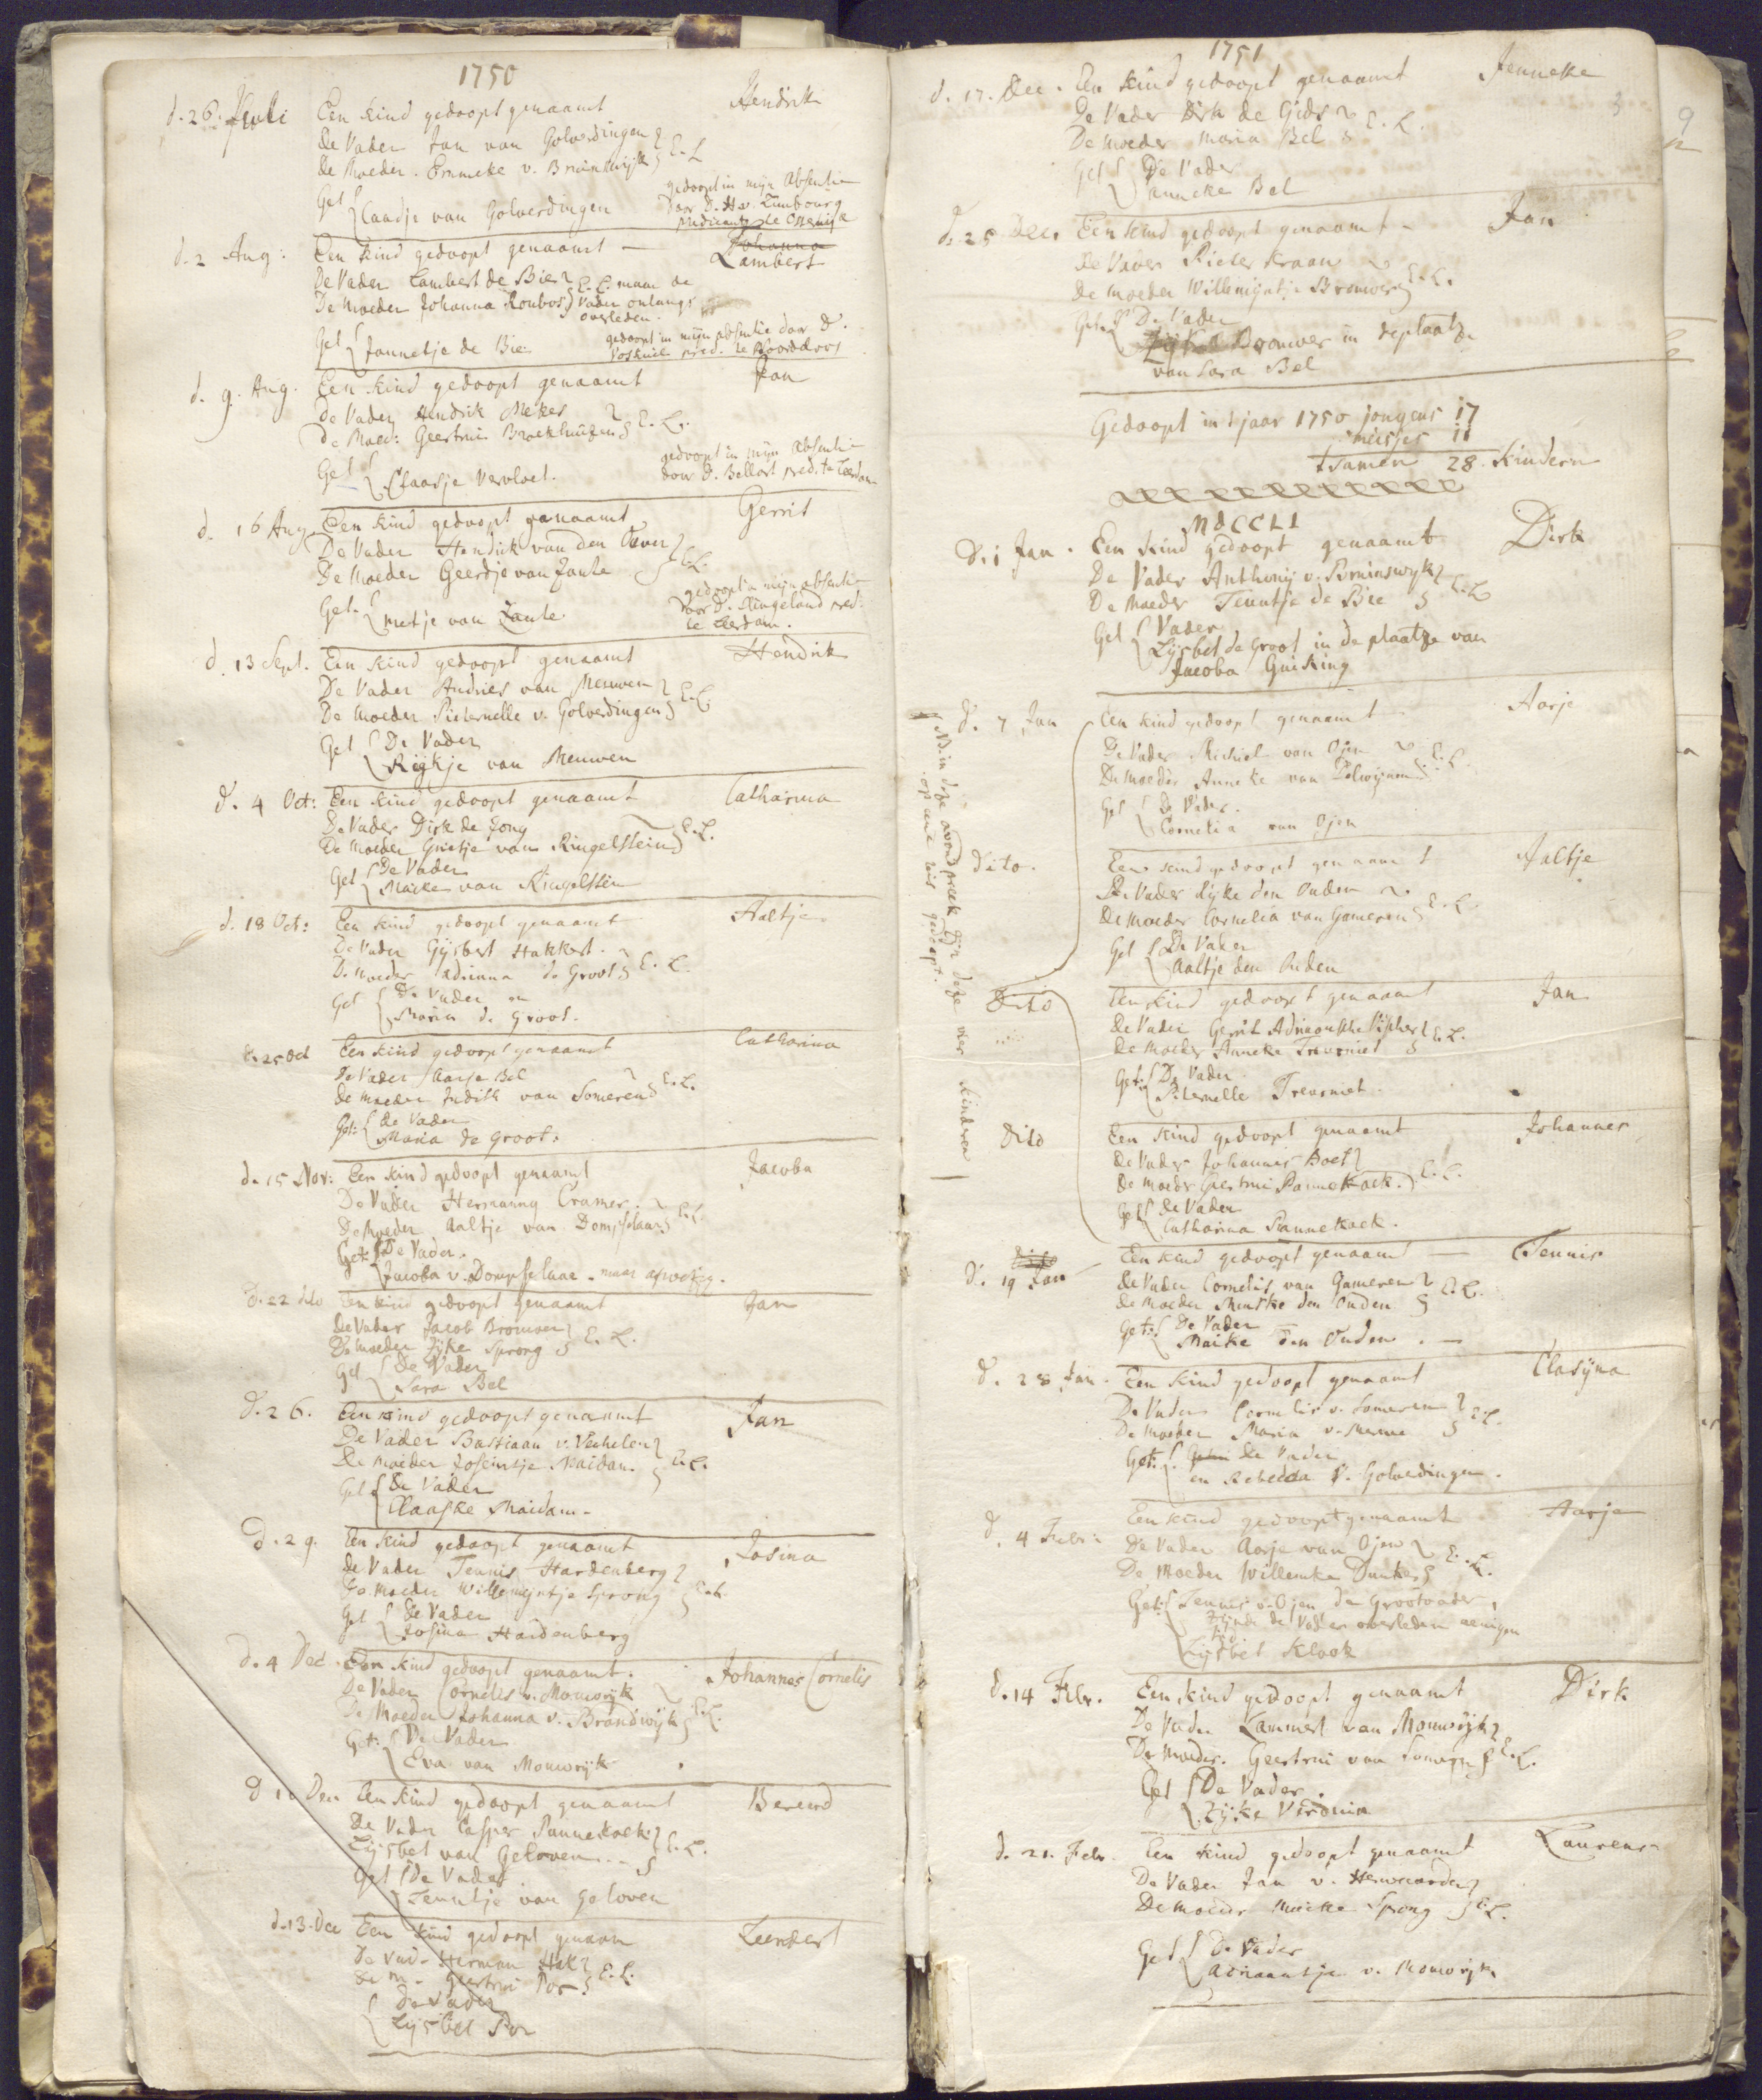 1750
d. 26. Juli Een kind gedoopt genaamt Hendrik
De Vader Jan van Golverdingen
De Moeder. Emmeke v. Bruinswijk E. L.
Get Claadje van Golverdingen
gedoopt in mijn absentie
door D. H. v. Limbourg
predicant te
d. 2 Aug: Een kind gedoopt genaamt — Johanna
Lambert
De Vader Lambert de Bie E. L. maar de
De Moeder Johanna Roubos Vader onlangs
overleden.
Get Jannetje de Bie
gedoopt in mijn absentie door D.
Voskuil pred. te Noordeloos
d. 9. Aug. Een kind gedoopt genaamt Jan
De Vader Hendrik Mekes
De Moed: Geertrui Broekhuizen E. L.
Get Claasje Vervloet.
gedoopt in mijn absentie
door D. Bellart pred. te Leerdam
d. 16 Aug. Een kind gedoopt genaamt Gerrit
De Vader Hendrik van den Oever
De Moeder Geertje van Zante E. L.
Get. Metje van Zante
gedoopt in mijn absentie
door D. Ringeland pred:
te Leerdam.
d. 13 Sept. Een kind gedoopt genaamt Hendrik
De Vader Andries van Meuwen
De Moeder Pieternelle v. Golverdingen E. L.
Get De Vader
Rijkje van Meuwen
d. 4 Oct: Een kind gedoopt genaamt Catharina
De Vader Dirk de Jong
De Moeder Grietje van Ringelstein E. L.
Get De Vader
Maike van Ringelstein
d. 18 Oct: Een kind gedoopt genaamt Aaltje
De Vader Gijsbert Hakkert
De Moeder Adriana de Groot E. L.
Get De Vader en
Maria de Groot.
d. 25 Oct Een kind gedoopt genaamt Catharina
De Vader Aarje Bel
de Moeder Judith van Someren E. L.
Get: de Vader
Maria de Groot:
d. 15 Nov: Een kind gedoopt genaamt Jacoba
De Vader Hermanny Cramer.
De Moeder Aaltje van Dompselaar E. L.
Get: De Vader.
Jacoba v. Dompselaar. maar afwezig.
d. 22 dito Een kind gedoopt genaamt Jan
De Vader Jacob Brouwer
De Moeder Zijke Sprong E. L.
Get De Vader
Sara Bel
d. 26. Een kind gedoopt genaamt Jan
De Vader Bastiaan v. Vechelen
De Moeder Joseintje Maidam E. L.
Get De Vader
Claaske Maidam.
d. 29. Een kind gedoopt genaamt Josina
De Vader Teunis Hardenberg
De Moeder Willemijntje Sprong E. L.
Get De Vader
Josina Hardenberg
d. 4 Dec. Een kind gedoopt genaamt. Johannes Cornelis
De Vader Cornelis v. Mouwrijk
De Moeder Johanna v. Brandwijk E. L.
Get: De Vader
Eva van Mouwrijk
d Dec Een kind gedoopt genaamt Berend
De Vader Casper Pannekoek
Lijsbet van Geloven E. L.
Get De Vader
Teuntje van Geloven
d. 13. Dec Een kind gedoopt genaam Leendert
De Vad. Herman Hak
de m. Geertrui Por E. L.
De Vader
Lijsbet Por
1751
d. 17. Dec. Een kind gedoopt genaamt Jenneke
De Vader Dirk de Gids
De Moeder Maria Bel E. L.
Get De Vader
Anneke Bel
d. 25 Dec. Een kind gedoopt genaamt - Jan
De Vader Pieter Kraan
De Moeder Willemijntje Brouwer E. L.
Get. De Vader
Zijke Brouwer in deplaatze
van Sara Bel
Gedoopt in 't jaar 1750 jongens 17
meisjes 11
tsamen 28 kindern
MDCCLI
d. 1 Jan. Een kind gedoopt genaamt Dirk
De Vader Anthonij v. Bruinswyk
De Moeder Teuntje de Bie E. L.
Get Vader
Lijsbet de Groot in de plaatze van
Jacoba Guiking
NB. in deze avondpreek zijn deze vier kinderen
op eene reis gedoopt.
d. 7 Jan Een kind gedoopt genaamt Aarje
De Vader Michiel van Ojen
De Moeder Anneke van Zelwijnen E. L.
Get De Vader.
Cornelia van Ojen
Dito. Een kind gedoopt genaamt Aaltje
De Vader Rijke den Ouden
De Moeder Cornelia van Gameren E. L.
Get De Vader
Aaltje den Ouden
Dito Een kind gedoopt genaamt Jan
De Vader Gerrit Adriaansche Vischer
De Moeder Anneke Treurniet E. L.
Get: De Vader
Piternelle Treurniet.
Dito Een kind gedoopt genaamt Johannes
De Vader Johannes Boet
De Moeder Geertrui Pannekoek. E. L.
Get de Vader
Catharina Pannekoek.
Dito
d. 19 Jan Een kind gedoopt genaamt — Teunis
De Vader Cornelis van Gameren
De Moeder Maike den Ouden E. L.
Get: De Vader
Maike den Ouden. —
d. 28 Jan. Een kind gedoopt genaamt Clasijna
De Vader Cornelis v. Someren
De Moeder Maria v. Meeuwe E. L.
Get: De Vader
en Rebecca v. Golverdingen.
d. 4 Febr: Een kind gedoopt genaamt Aarje
De Vader Aarje van Ojen
De Moeder Willemke Dunker E. L.
Get: Teunis v. Ojen de Grootvader,
zijnde de Vader overleden eenigen
tijd
Lijsbet Klook
d. 14 Febr. Een kind gedoopt genaamt Dirk
De Vader Lammert van Mouwrijk
De Moeder. Geertrui van Someren E. L.
Get De Vader.
Zijke Verdonia
d. 21. Febr. Een kind gedoopt genaamt Laurens
De Vader Jan v. Herwaarden
De Moeder Maike Sprong E. L.
Get De Vader
Adriaantje v. Mouwrijk